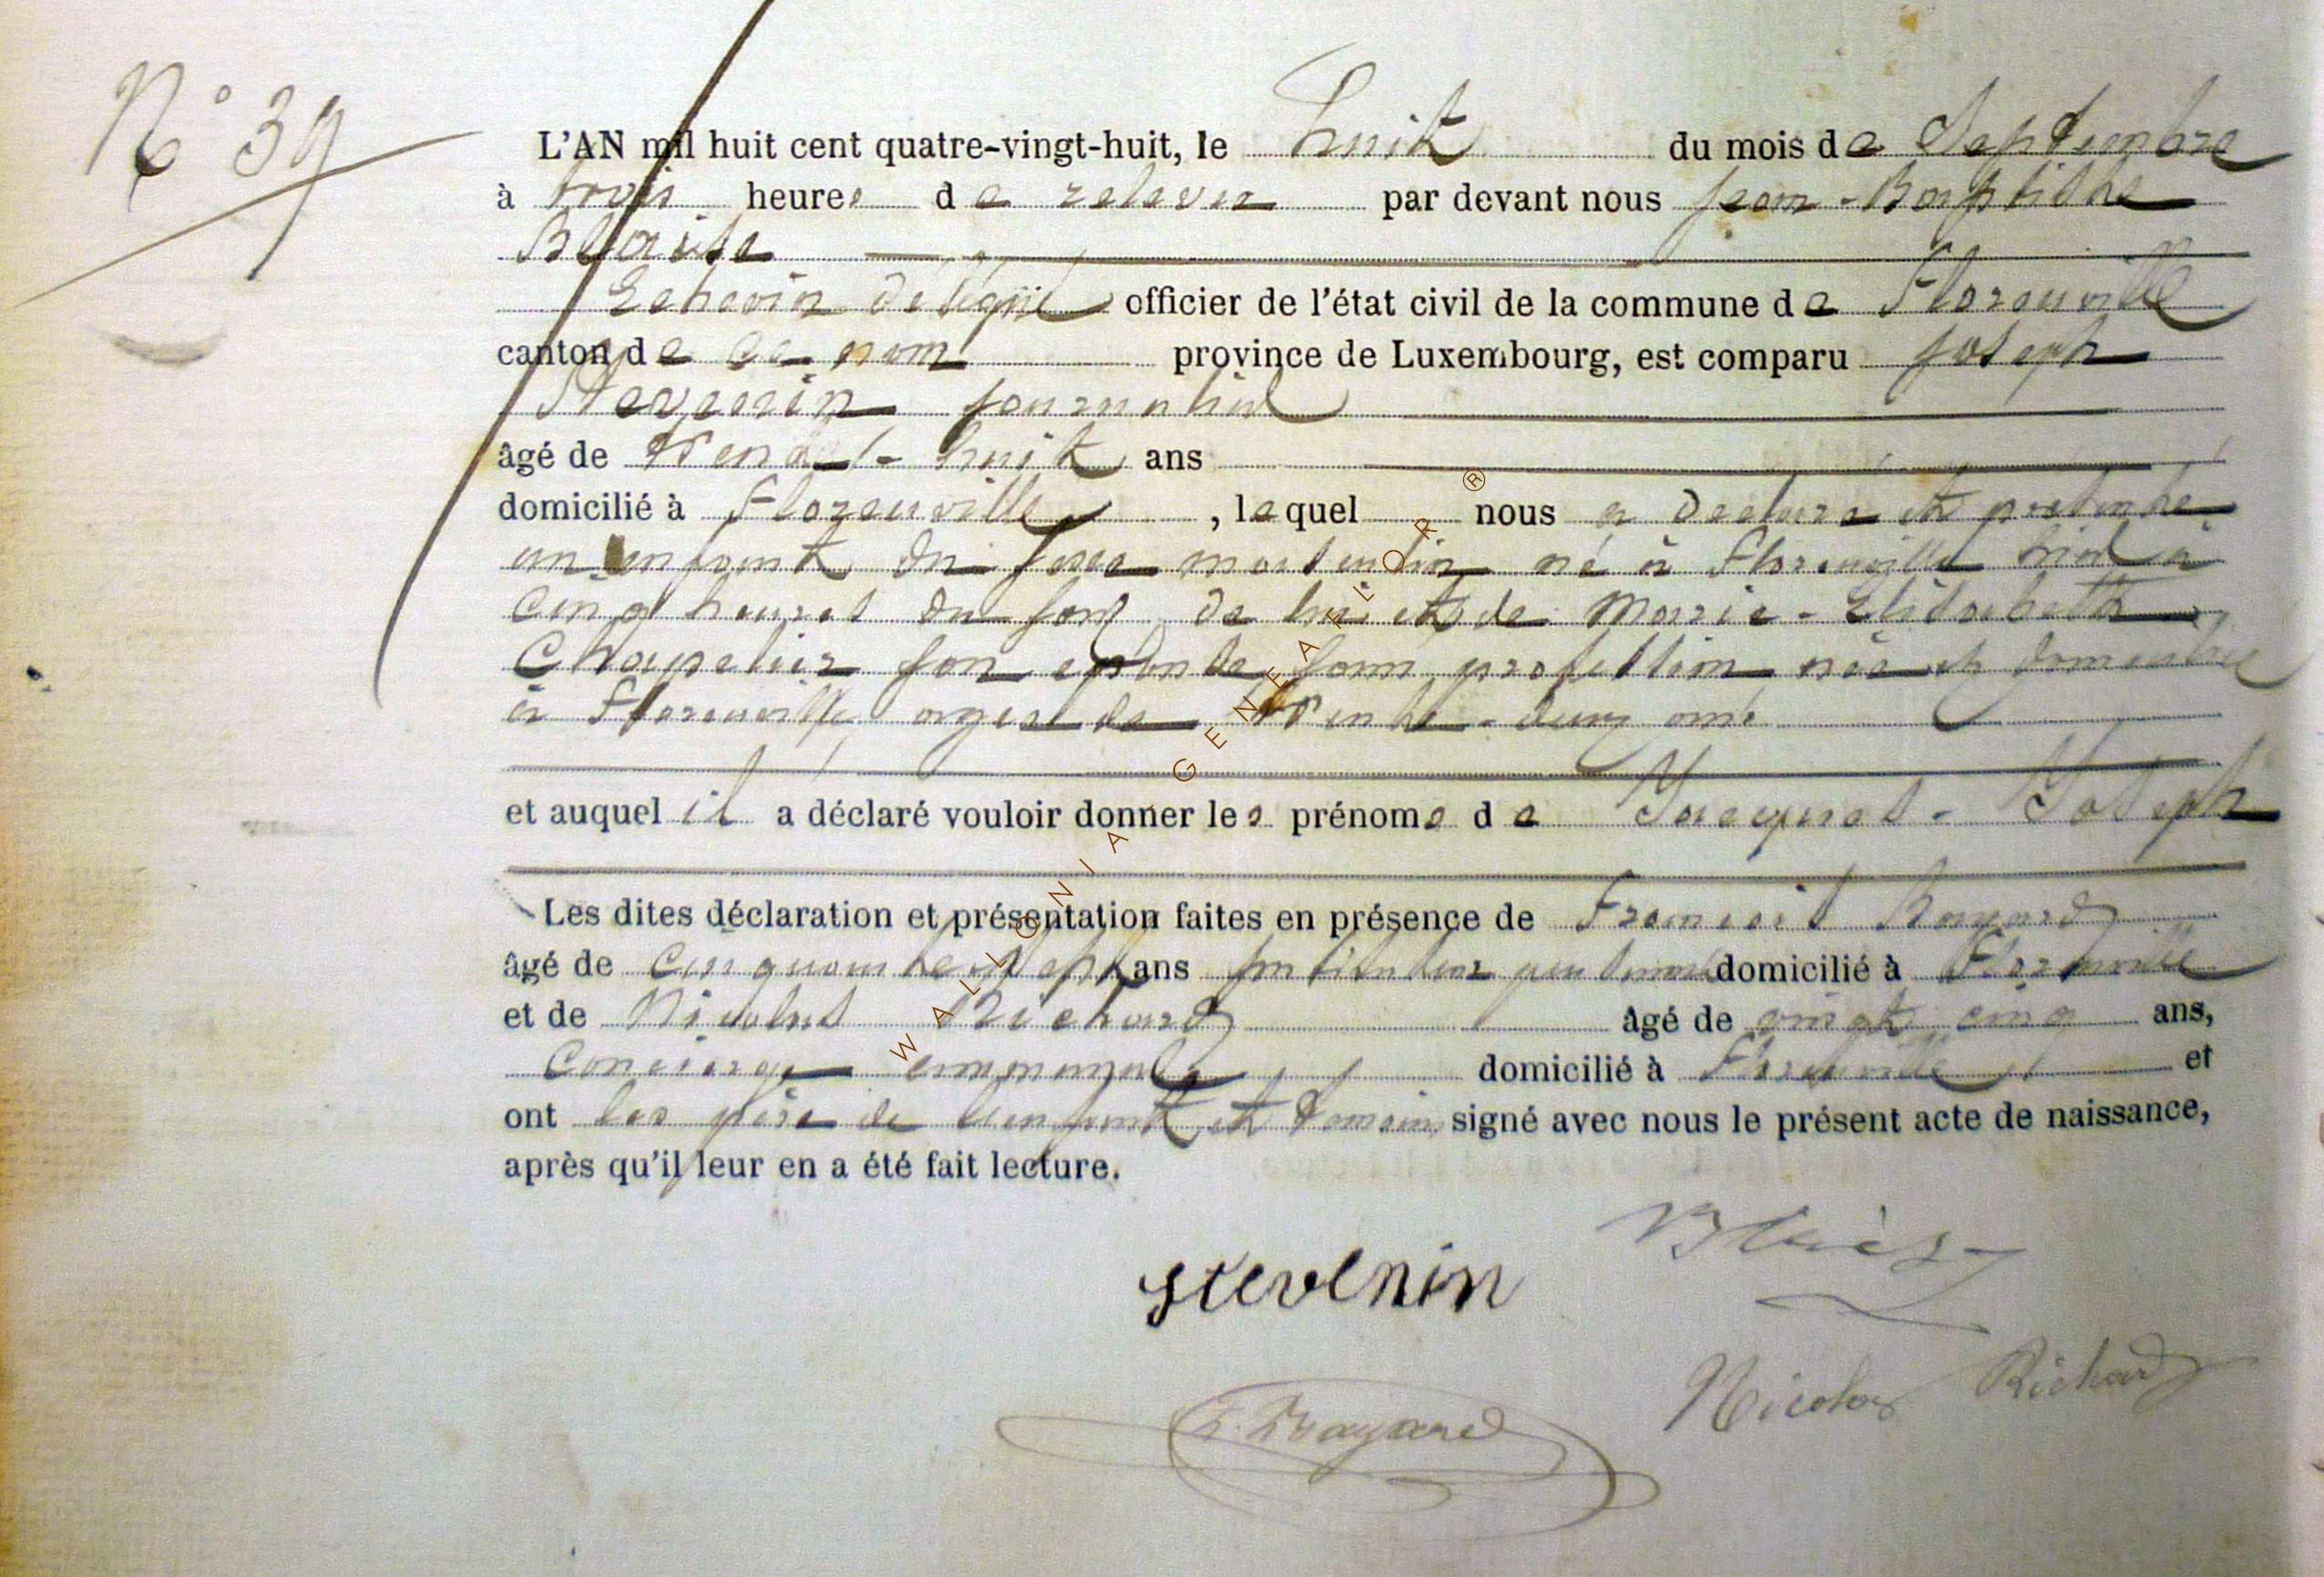 N° 39
L'AN mil huit cent quatre-vingt-huit, le huit du mois de Septembre
à trois heures de relevée par devant nous Jean-Baptiste
Blaise
Echevin délégué officier de l'état civil de la commune de Florenville
canton de ce nom province de Luxembourg, est comparu Joseph
Stevenin journalier
âgé de trente-huit ans
domicilié à Florenville, lequel nous a déclaré et présenté
un enfant du sexe masculin né à Florenville hier à
cinq heures du soir de lui et de Marie-Elisabeth
Chapelier son épouse sans profession née et domiciliée
à Florenville agée de trente-deux ans
et auquel il a déclaré vouloir donner les prénoms de Jacques-Joseph
Les dites déclaration et présentation faites en présence de François Bayard
âgé de cinquante sept ans domicilié à Florenville
et de Nicolas Richard âgé de vingt cinq ans,
Concierge communal domicilié à Florenville et
ont les père de l'enfant et témoins signé avec nous le présent acte de naissance,
après qu'il leur en a été fait lecture.
stevenin
Nicolas Richard
Bayard
WALLONIA GENEAFLOR ®